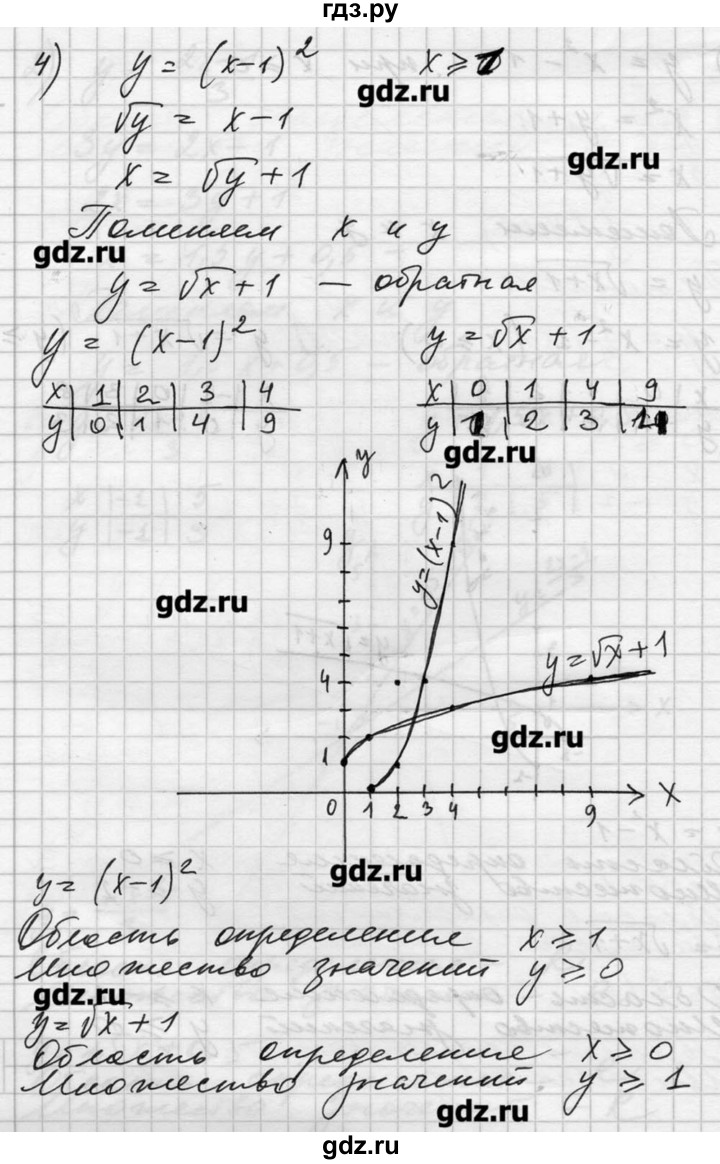 гдз.ру
4) y = (x-1)² x ≥ 1
gdz.ru
√y = x-1
gdz.ru
x = √y + 1
Поменяем x и y
gdz.ru
y = √x + 1 — обратная
y = (x-1)² y = √x + 1
x | 1 | 2 | 3 | 4
y | 0 | 1 | 4 | 9
x | 0 | 1 | 4 | 9
y | 1 | 2 | 3 |
gdz.ru
y
y=(x-1)²
9
gdz.ru
y=√x+1
4
gdz.ru
1
0 1 2 3 4 9 x
gdz.ru
y = (x-1)²
Область определение x ≥ 1
Множество значений y ≥ 0
gdz.ru
y=√x + 1
Область определение x ≥ 0
Множество значений. y ≥ 1
gdz.ru
gdz.ru